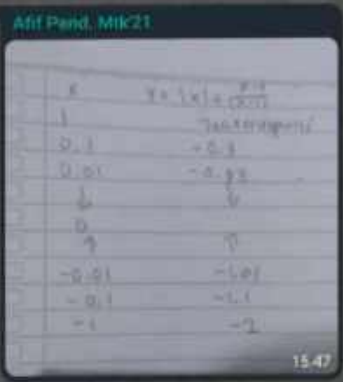 Afif Pend. Mtk'21
x
1
0.1 -0.9
0.01 -0.99
↓ ↓
0
↑ ↑
-0.01 -1.01
-0.1 -1.1
-1 -2
15.47